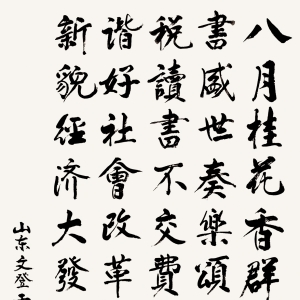 八月桂花香群
書盛世奏樂頌
税讀書不交費
谐好社會改革
新貌經济大發
山东文登